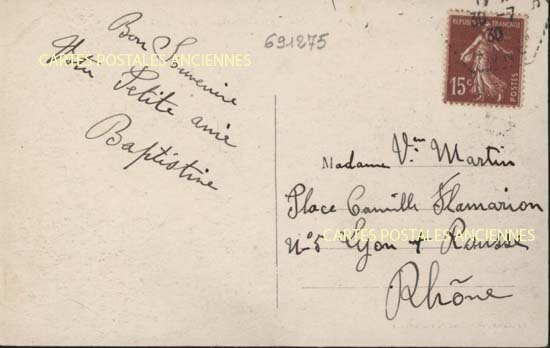 Bon Souvenire
Petite amie
Baptistine
691275
RÉPUBLIQUE FRANÇAISE
15c
POSTES
Madame Vve Martin
Place Camille Flamarion
N°5 Lyon + Rousse
Rhône
CARTES POSTALES ANCIENNES
CARTES POSTALES ANCIENNES